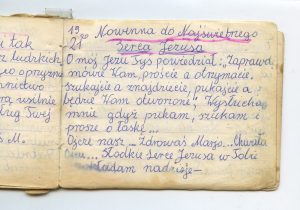 i tak
ludzkich
19
2180 Nowenna do Najświętszego
Serca Jezusa
O mój Jezu Tyś powiedział: "Zaprawdę
mówię Wam, proście a otrzymacie,
szukajcie a znajdziecie, pukajcie a
będzie Wam otworzone". Wysłuchaj
mnie gdyż pukam, szukam i
proszę o łaskę...
Ojcze nasz... Zdrowaś Maryo... Chwała
Ojcu... Słodkie Serce Jezusa w Tobie
składam nadzieję -